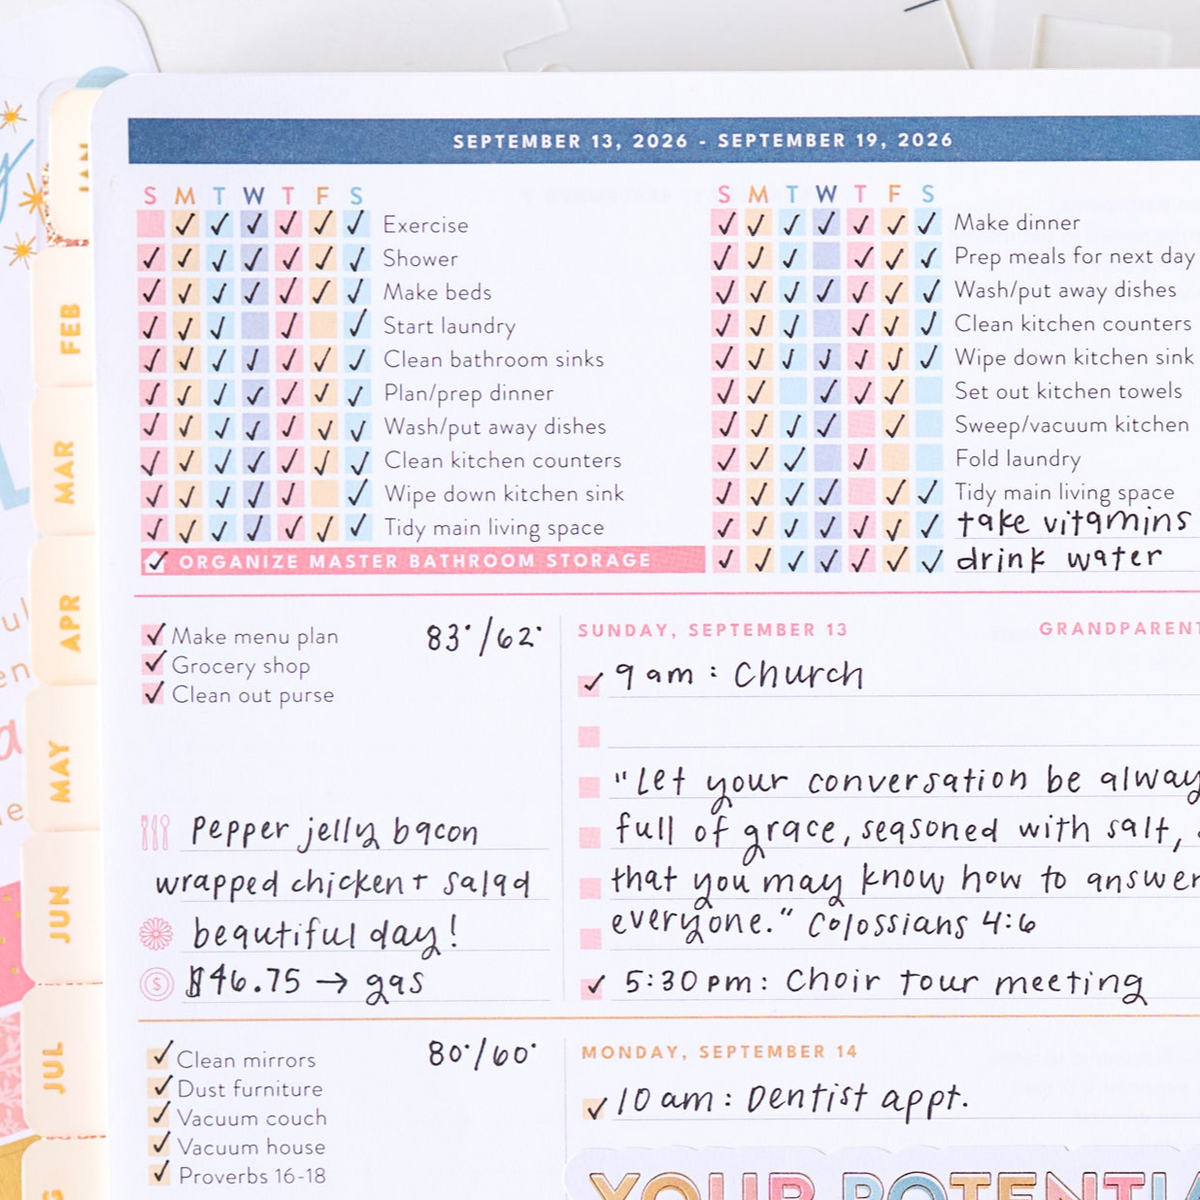 SEPTEMBER 13, 2026 - SEPTEMBER 19, 2026
S M T W T F S
Exercise
Shower
Make beds
Start laundry
Clean bathroom sinks
Plan/prep dinner
Wash/put away dishes
Clean kitchen counters
Wipe down kitchen sink
Tidy main living space
ORGANIZE MASTER BATHROOM STORAGE
S M T W T F S
Make dinner
Prep meals for next day
Wash/put away dishes
Clean kitchen counters
Wipe down kitchen sink
Set out kitchen towels
Sweep/vacuum kitchen
Fold laundry
Tidy main living space
take vitamins
drink water
Make menu plan
Grocery shop
Clean out purse
83°/62°
Pepper jelly bacon
wrapped chicken + salad
beautiful day!
$46.75 → gas
SUNDAY, SEPTEMBER 13
GRANDPARENT
9 am: Church
"Let your conversation be alway
full of grace, seasoned with salt,
that you may know how to answer
everyone." Colossians 4:6
5:30 pm: Choir tour meeting
Clean mirrors
Dust furniture
Vacuum couch
Vacuum house
Proverbs 16-18
80°/60°
MONDAY, SEPTEMBER 14
10 am: Dentist appt.
YOUR POTENTIA
JAN
FEB
MAR
APR
MAY
JUN
JUL